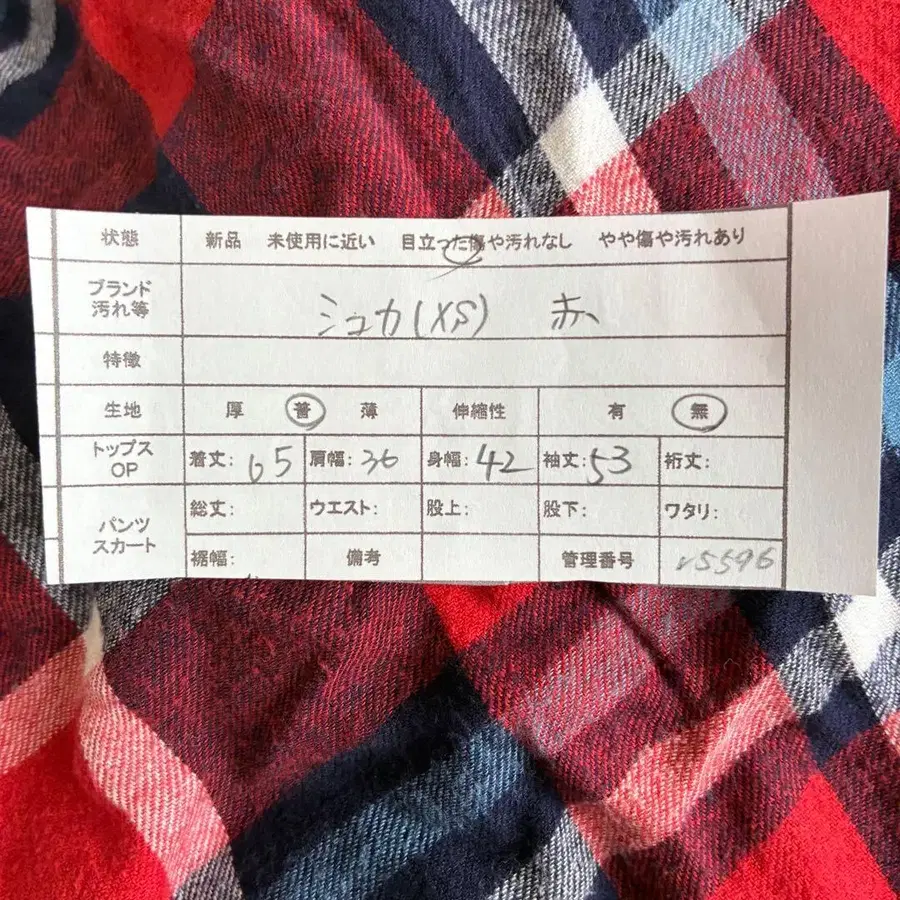 状態 新品 未使用に近い 目立った傷や汚れなし やや傷や汚れあり
ブランド
汚れ等
シュカ(XS) 赤
特徴
生地 厚 普 薄 伸縮性 有 無
トップス
OP
着丈: 65 肩幅: 36 身幅: 42 袖丈: 53 裄丈:
パンツ
スカート
総丈: ウエスト: 股上: 股下: ワタリ:
裾幅: 備考 管理番号 r5596